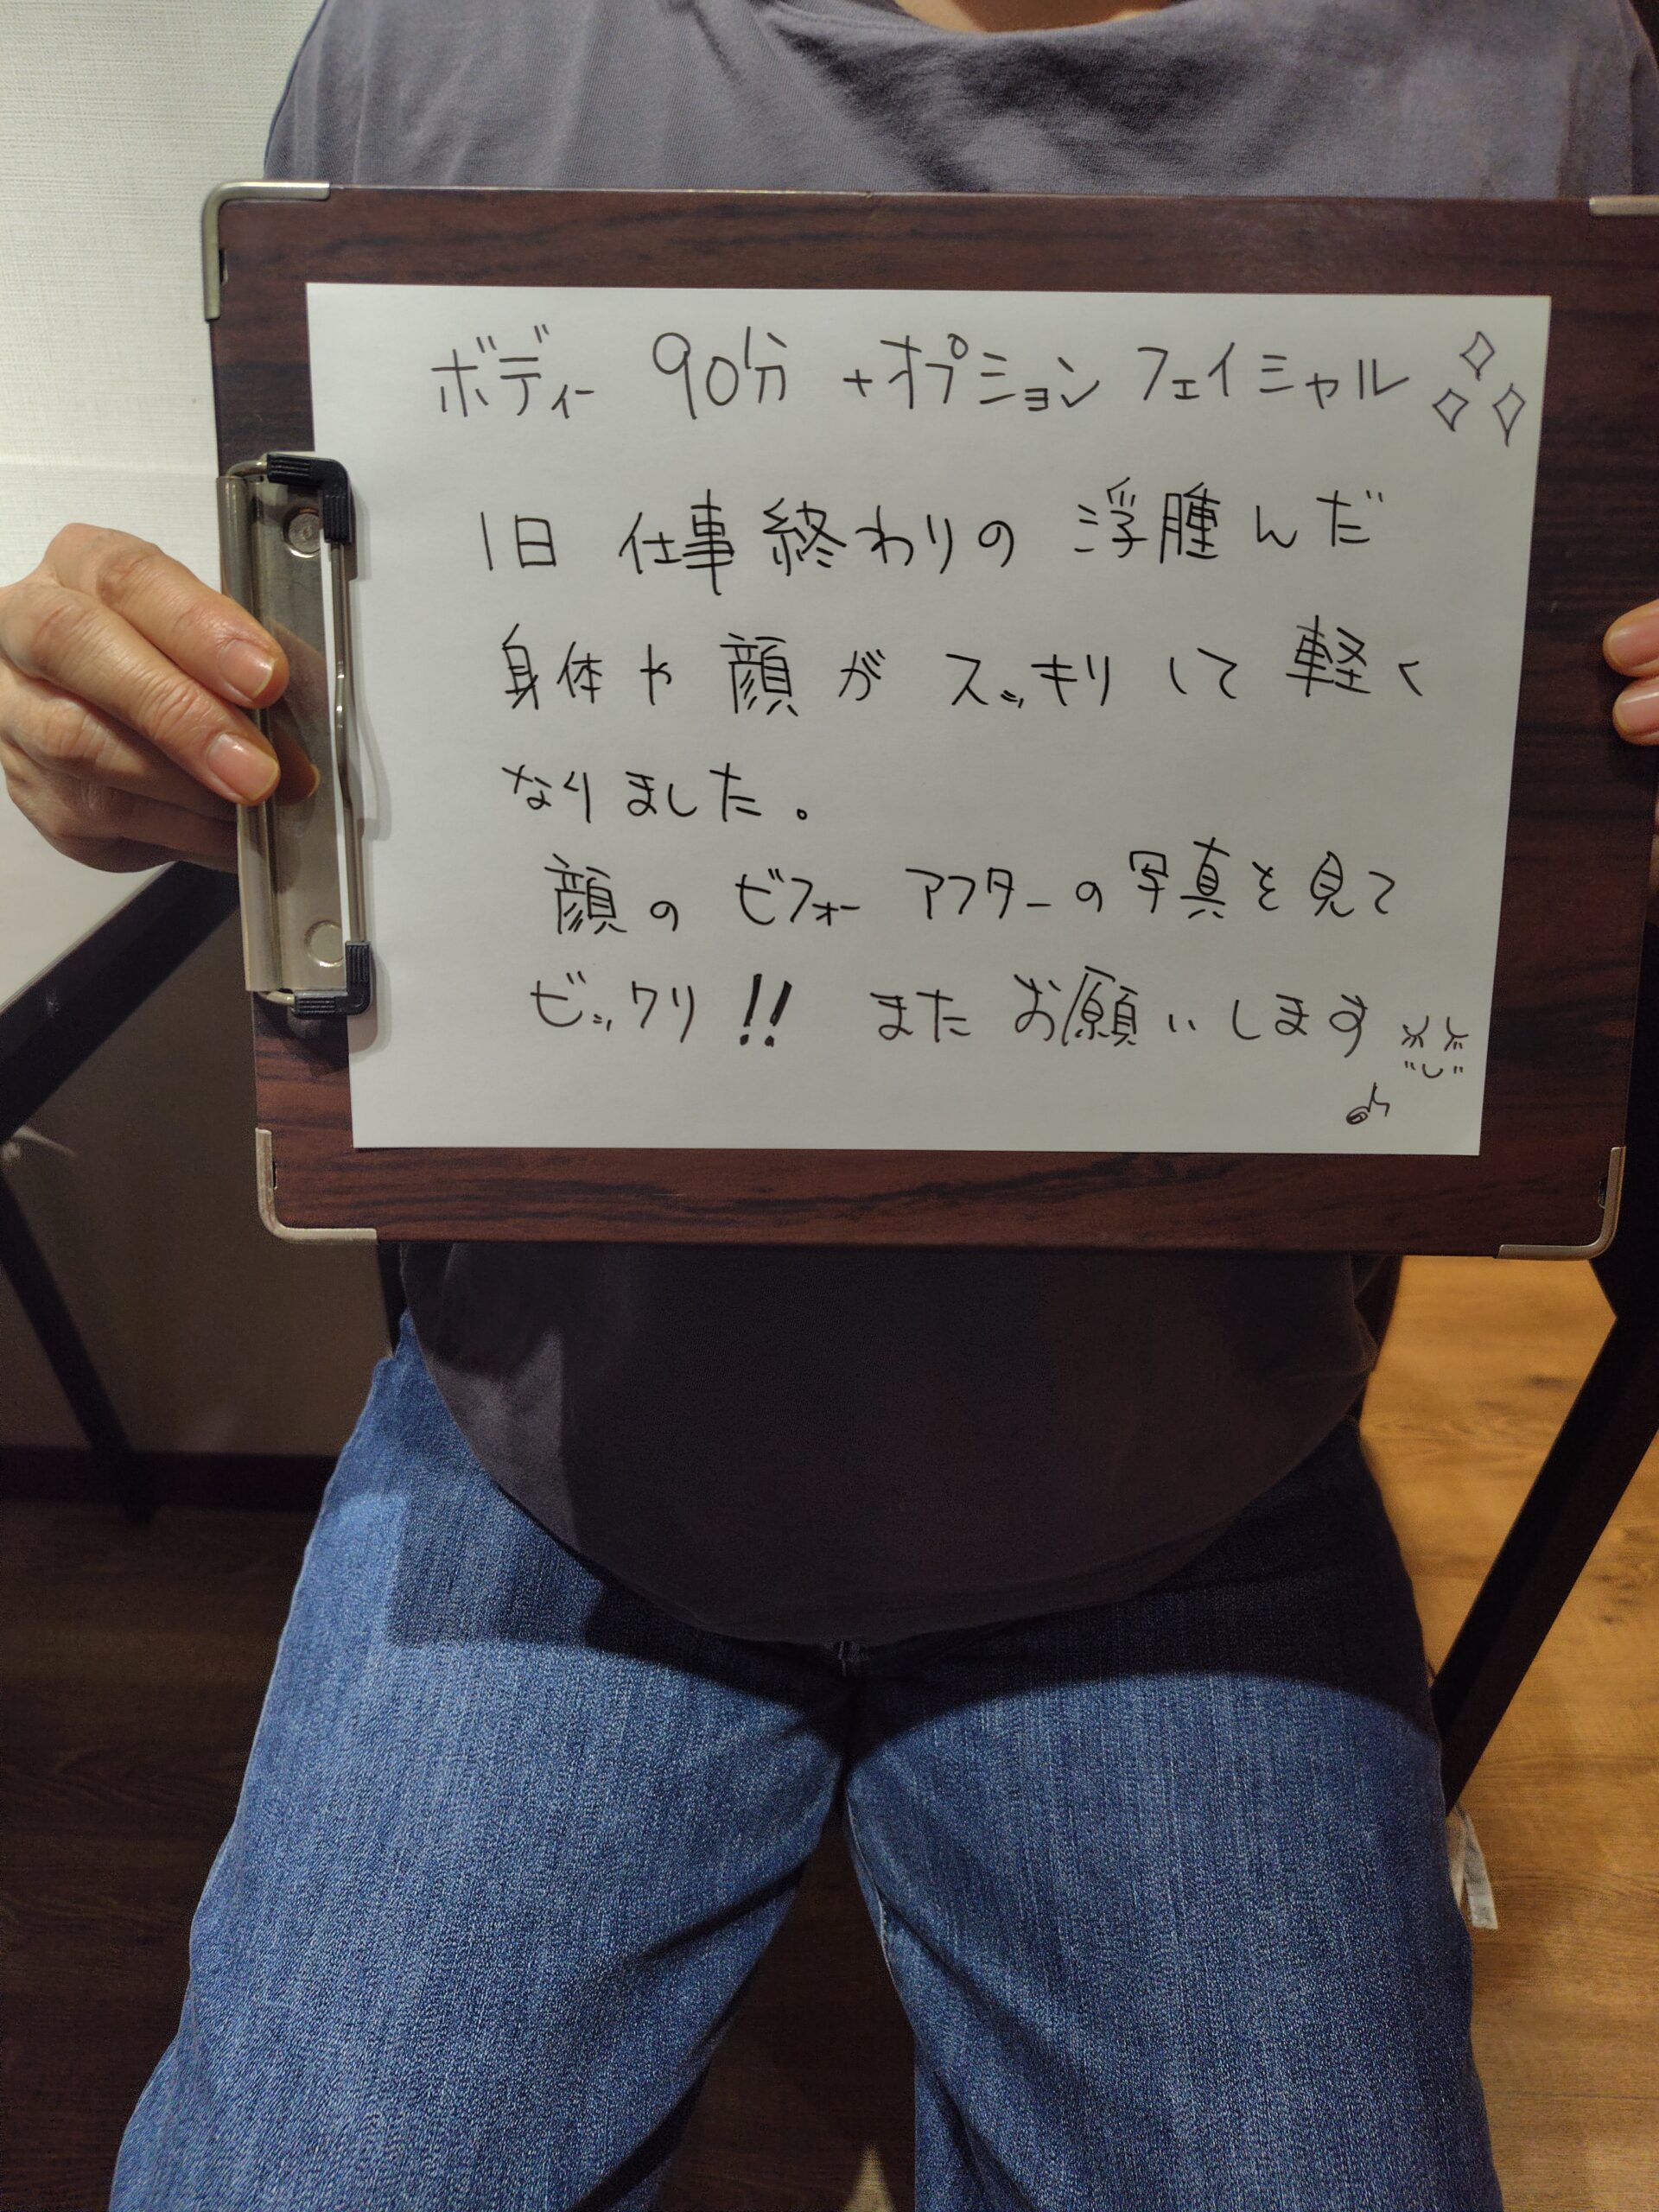 ボディー 90分 +オプション フェイシャル
1日 仕事終わりの 浮腫んだ
身体や顔がスッキリして軽く
なりました。
顔のビフォーアフターの写真を見て
ビックリ!! またお願いします